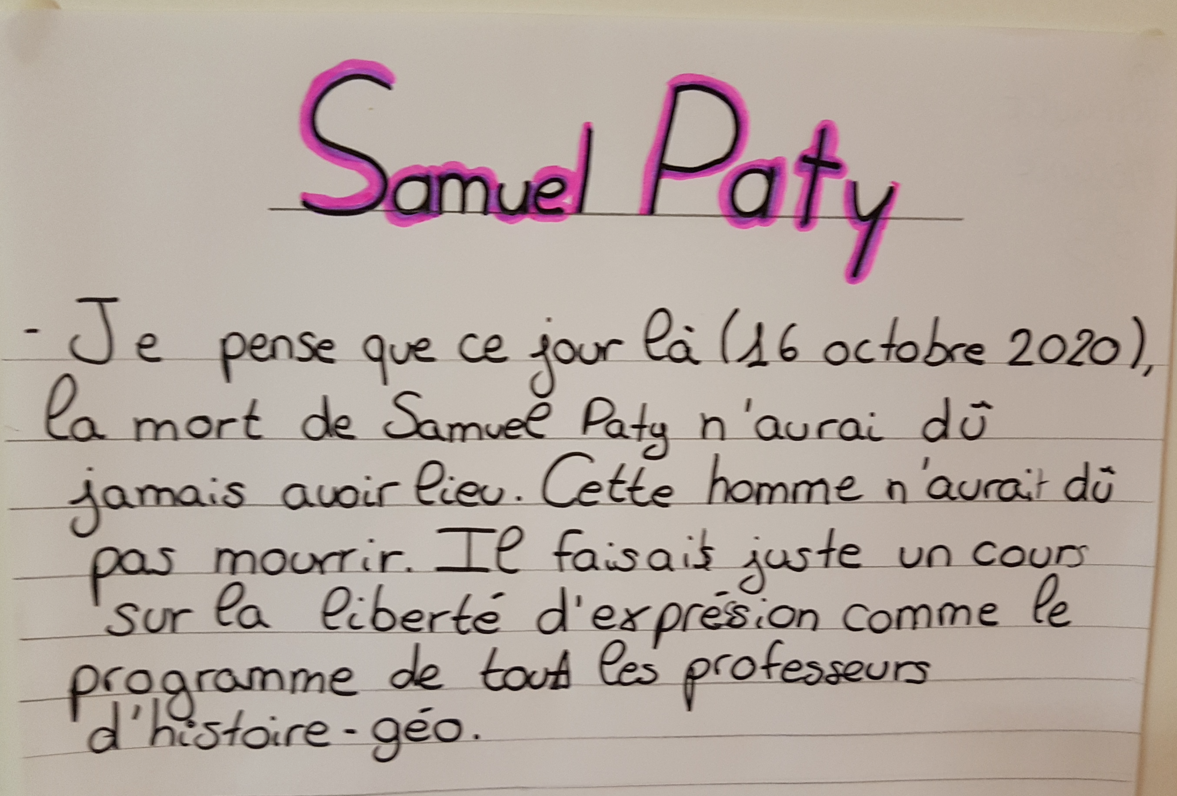 Samuel Paty
- Je pense que ce jour là (16 octobre 2020),
la mort de Samuel Paty n'aurai dû
jamais avoir lieu. Cette homme n'aurait dû
pas mourrir. Il faisait juste un cours
sur la liberté d'exprésion comme le
programme de tout les professeurs
d'histoire-géo.